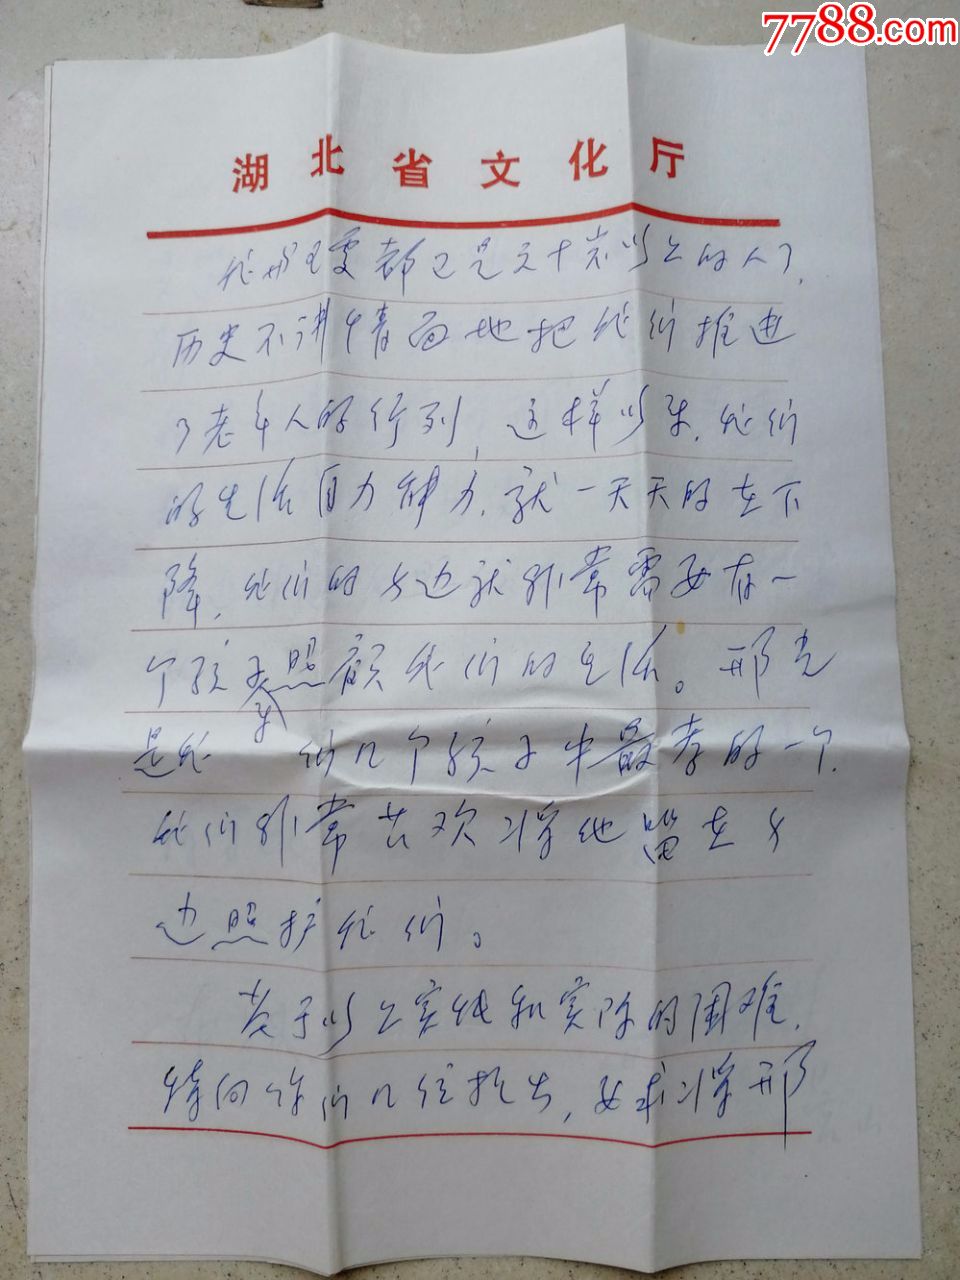 7788.com
湖北省文化厅
都已是六十岁以上的人了,
历史不讲情面地把他们推进
了老年人的行列,这样以来,他们
的生活自力能力,就一天天的在下
降,他们的身边就非常需要有一
个孩子来照顾他们的生活。邢光
是他们几个孩子中最孝的一个,
他们非常喜欢将他留在身
边照护他们。
基于以上实情和实际的困难,
特向你们几位提出,要求将邢